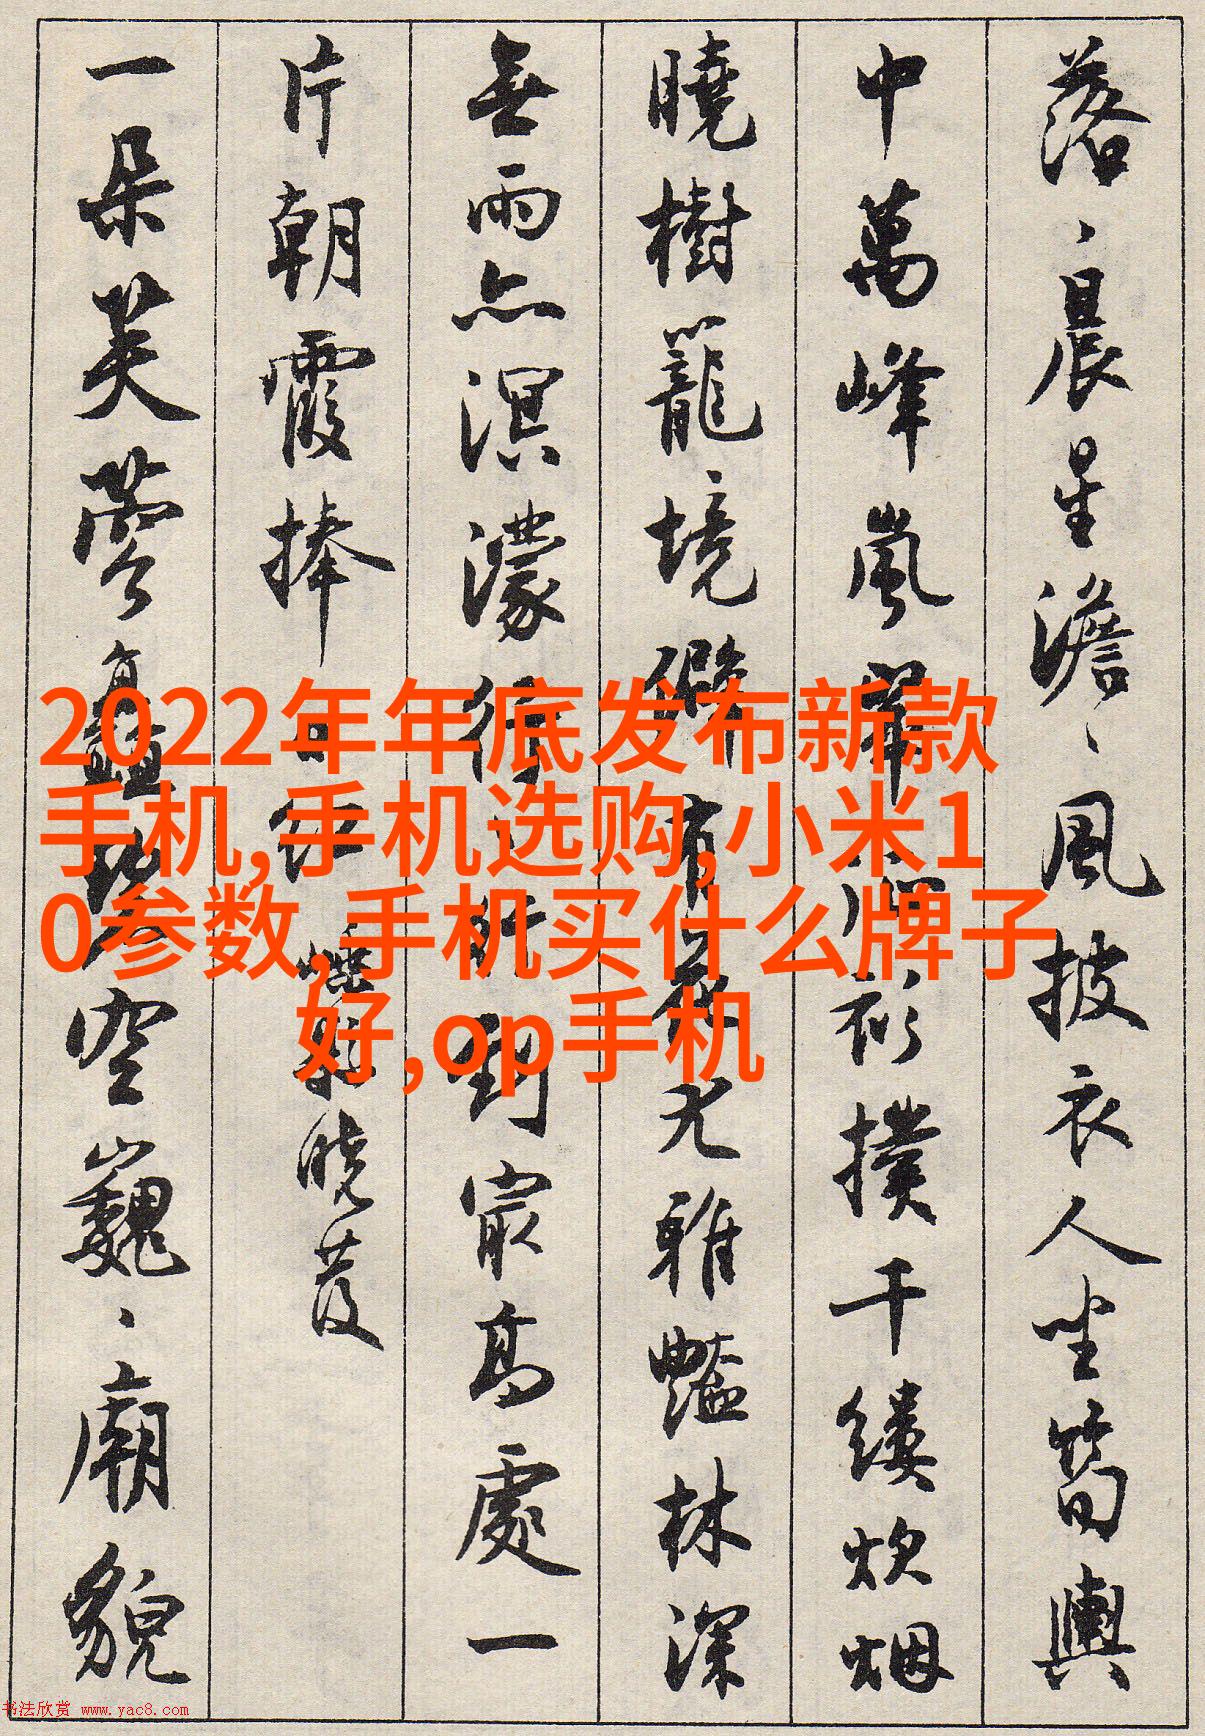 落、晨星澹、風披衣人坐筍輿
中萬峰嵐翠衫撲千縷炊烟
曉樹籠、境僻有花尤雅豔林深
無雨亦溟濛行行到最高處一
片朝霞捧日紅 縣曉發
一朵芙蓉矗碧空巍、廟貌
2022年年底发布新款
手机,手机选购,小米1
0参数,手机买什么牌子
好,op手机
书法欣赏 www.yac8.com